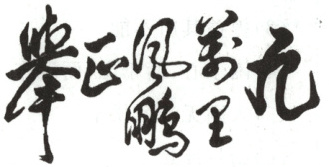 九
萬里
風鵬
正
舉